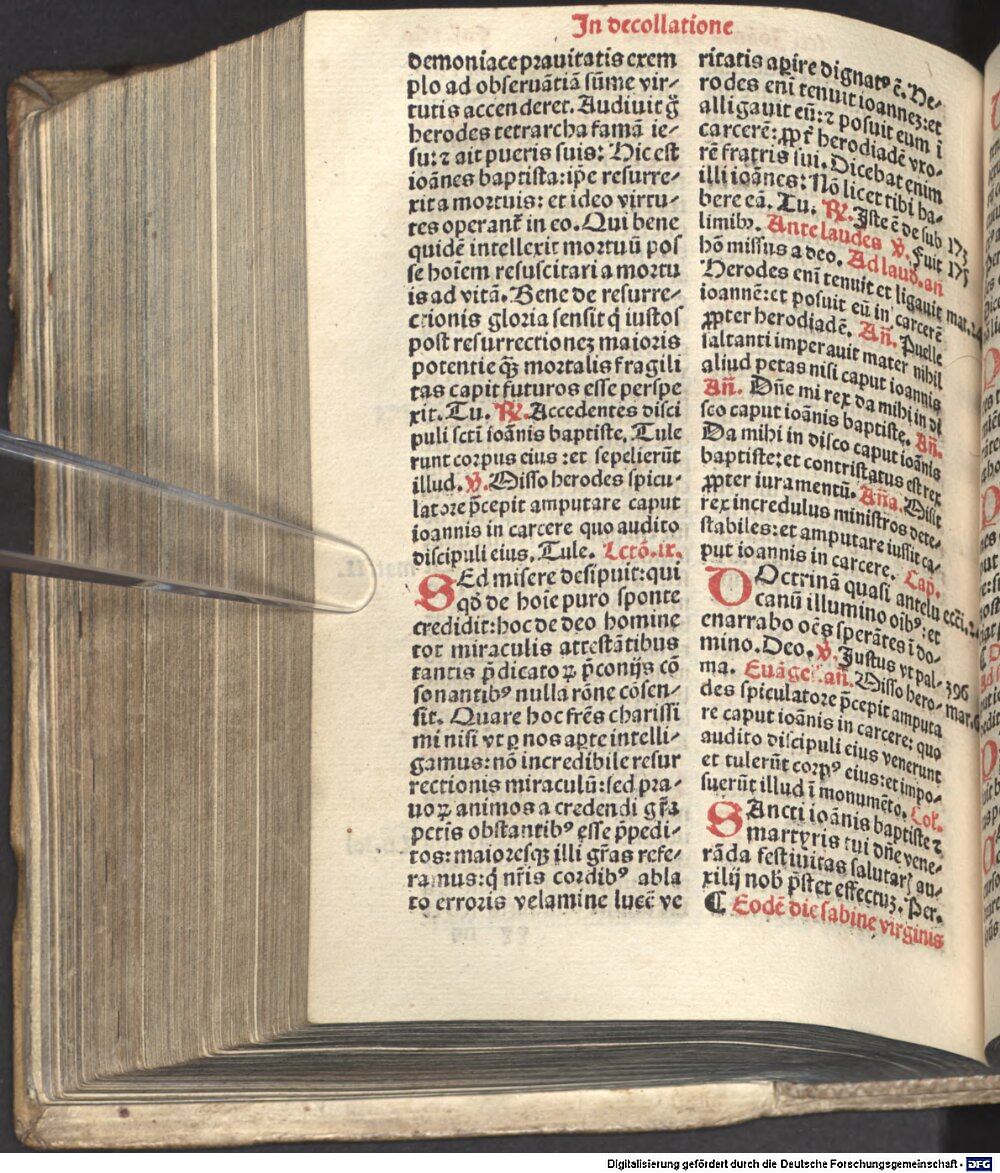 In decollatione
demoniace prauitatis exem
plo ad obseruãtiã sũme vir⸗
tutis accenderet. Audiuit g̃
herodes tetrarcha famã ie⸗
su: ⁊ ait pueris suis: Hic est
ioãnes baptista: ip̃e resurre⸗
xit a mortuis: et ideo virtu⸗
tes operant᷑ in eo. Qui bene
quidẽ intellexit mortuũ pos
se hoĩem resuscitari a mortu
is ad vitã. Bene de resurre⸗
ctionis gloria sensit q̇ iustos
post resurrectionez maioris
potentie q̃ꝫ mortalis fragili
tas capit futuros esse perspe
xit. Tu. ℟. Accedentes disci
puli sctĩ ioãnis baptiste. Tule
runt corpus eius: et sepelierũt
illud. ℣. Misso herodes spicu⸗
latore p̃cepit amputare caput
ioannis in carcere quo audito
discipuli eius. Tule. Lctõ. ix.
SEd misere desipuit: qui
qõ de hoĩe puro sponte
credidit: hoc de deo homine
tot miraculis attestãtibus
tantis p̃dicatoꝝ p̃conijs cõ
sonantibꝰ nulla rõne cõsen⸗
sit. Quare hoc frẽs charissi
mi nisi vt ꝑ nos aꝑte intelli⸗
gamus: nõ incredibile resur
rectionis miraculũ: sed pra⸗
uoꝝ animos a credendi gr̃a
pctĩs obstantibꝰ esse p̃pedi⸗
tos: maioresqꝫ illi gr̃as refe⸗
ramus: q̇ nr̃is cordibꝰ abla
to erroris velamine lucẽ ve
ritatis aꝑire dignatꝰ ẽ. He⸗
rodes eni᷑ tenuit ioannez: et
alligauit eũ: ⁊ posuit eum ĩ
carcerẽ: ꝓpt᷑ herodiadẽ vxo⸗
rẽ fratris sui. Dicebat enim
illi ioãnes: Nõ licet tibi ha⸗
bere eã. Tu. ℟. Iste ẽ de sub 173
limibꝫ. Ante laudes ℣. Fuit 175
hõ missus a deo. Ad laud. añ
Herodes eni᷑ tenuit et ligauit mat.
ioannẽ: et posuit eũ in carcerẽ
ꝓpter herodiadẽ. Añ. Puelle
saltanti imperauit mater nihil
aliud petas nisi caput ioannis
Añ. Dñe mi rex da mihi in di
sco caput ioãnis baptiste. Añ.
Da mihi in disco caput ioãnis
baptiste: et contristatus est rex
ꝓpter iuramentũ. Aña. Misit
rex incredulus ministros dete⸗
stabiles: et amputare iussit ca⸗
put ioannis in carcere. Cap.
DOctrinã quasi antelu ecci. 24
canũ illumino oĩbꝰ: et
enarrabo oẽs sperãtes ĩ do⸗
mino. Deo. ℣. Justus vt pal⸗ 396
ma. Euãgel. añ. Misso hero⸗ mar. 6
des spiculatore p̃cepit amputa
re caput ioãnis in carcere: quo
audito discipuli eius venerunt
et tulerũt corpꝰ eius: et impo⸗
suerũt illud ĩ monumẽto. Col.
SAncti ioãnis baptiste ⁊
martyris tui dñe vene⸗
rãda festiuitas salutarꝭ au⸗
xilij nob̃ p̃stet effectuz. Per.
¶ Eodẽ die sabine virginis
Digitalisierung gefördert durch die Deutsche Forschungsgemeinschaft - DFG